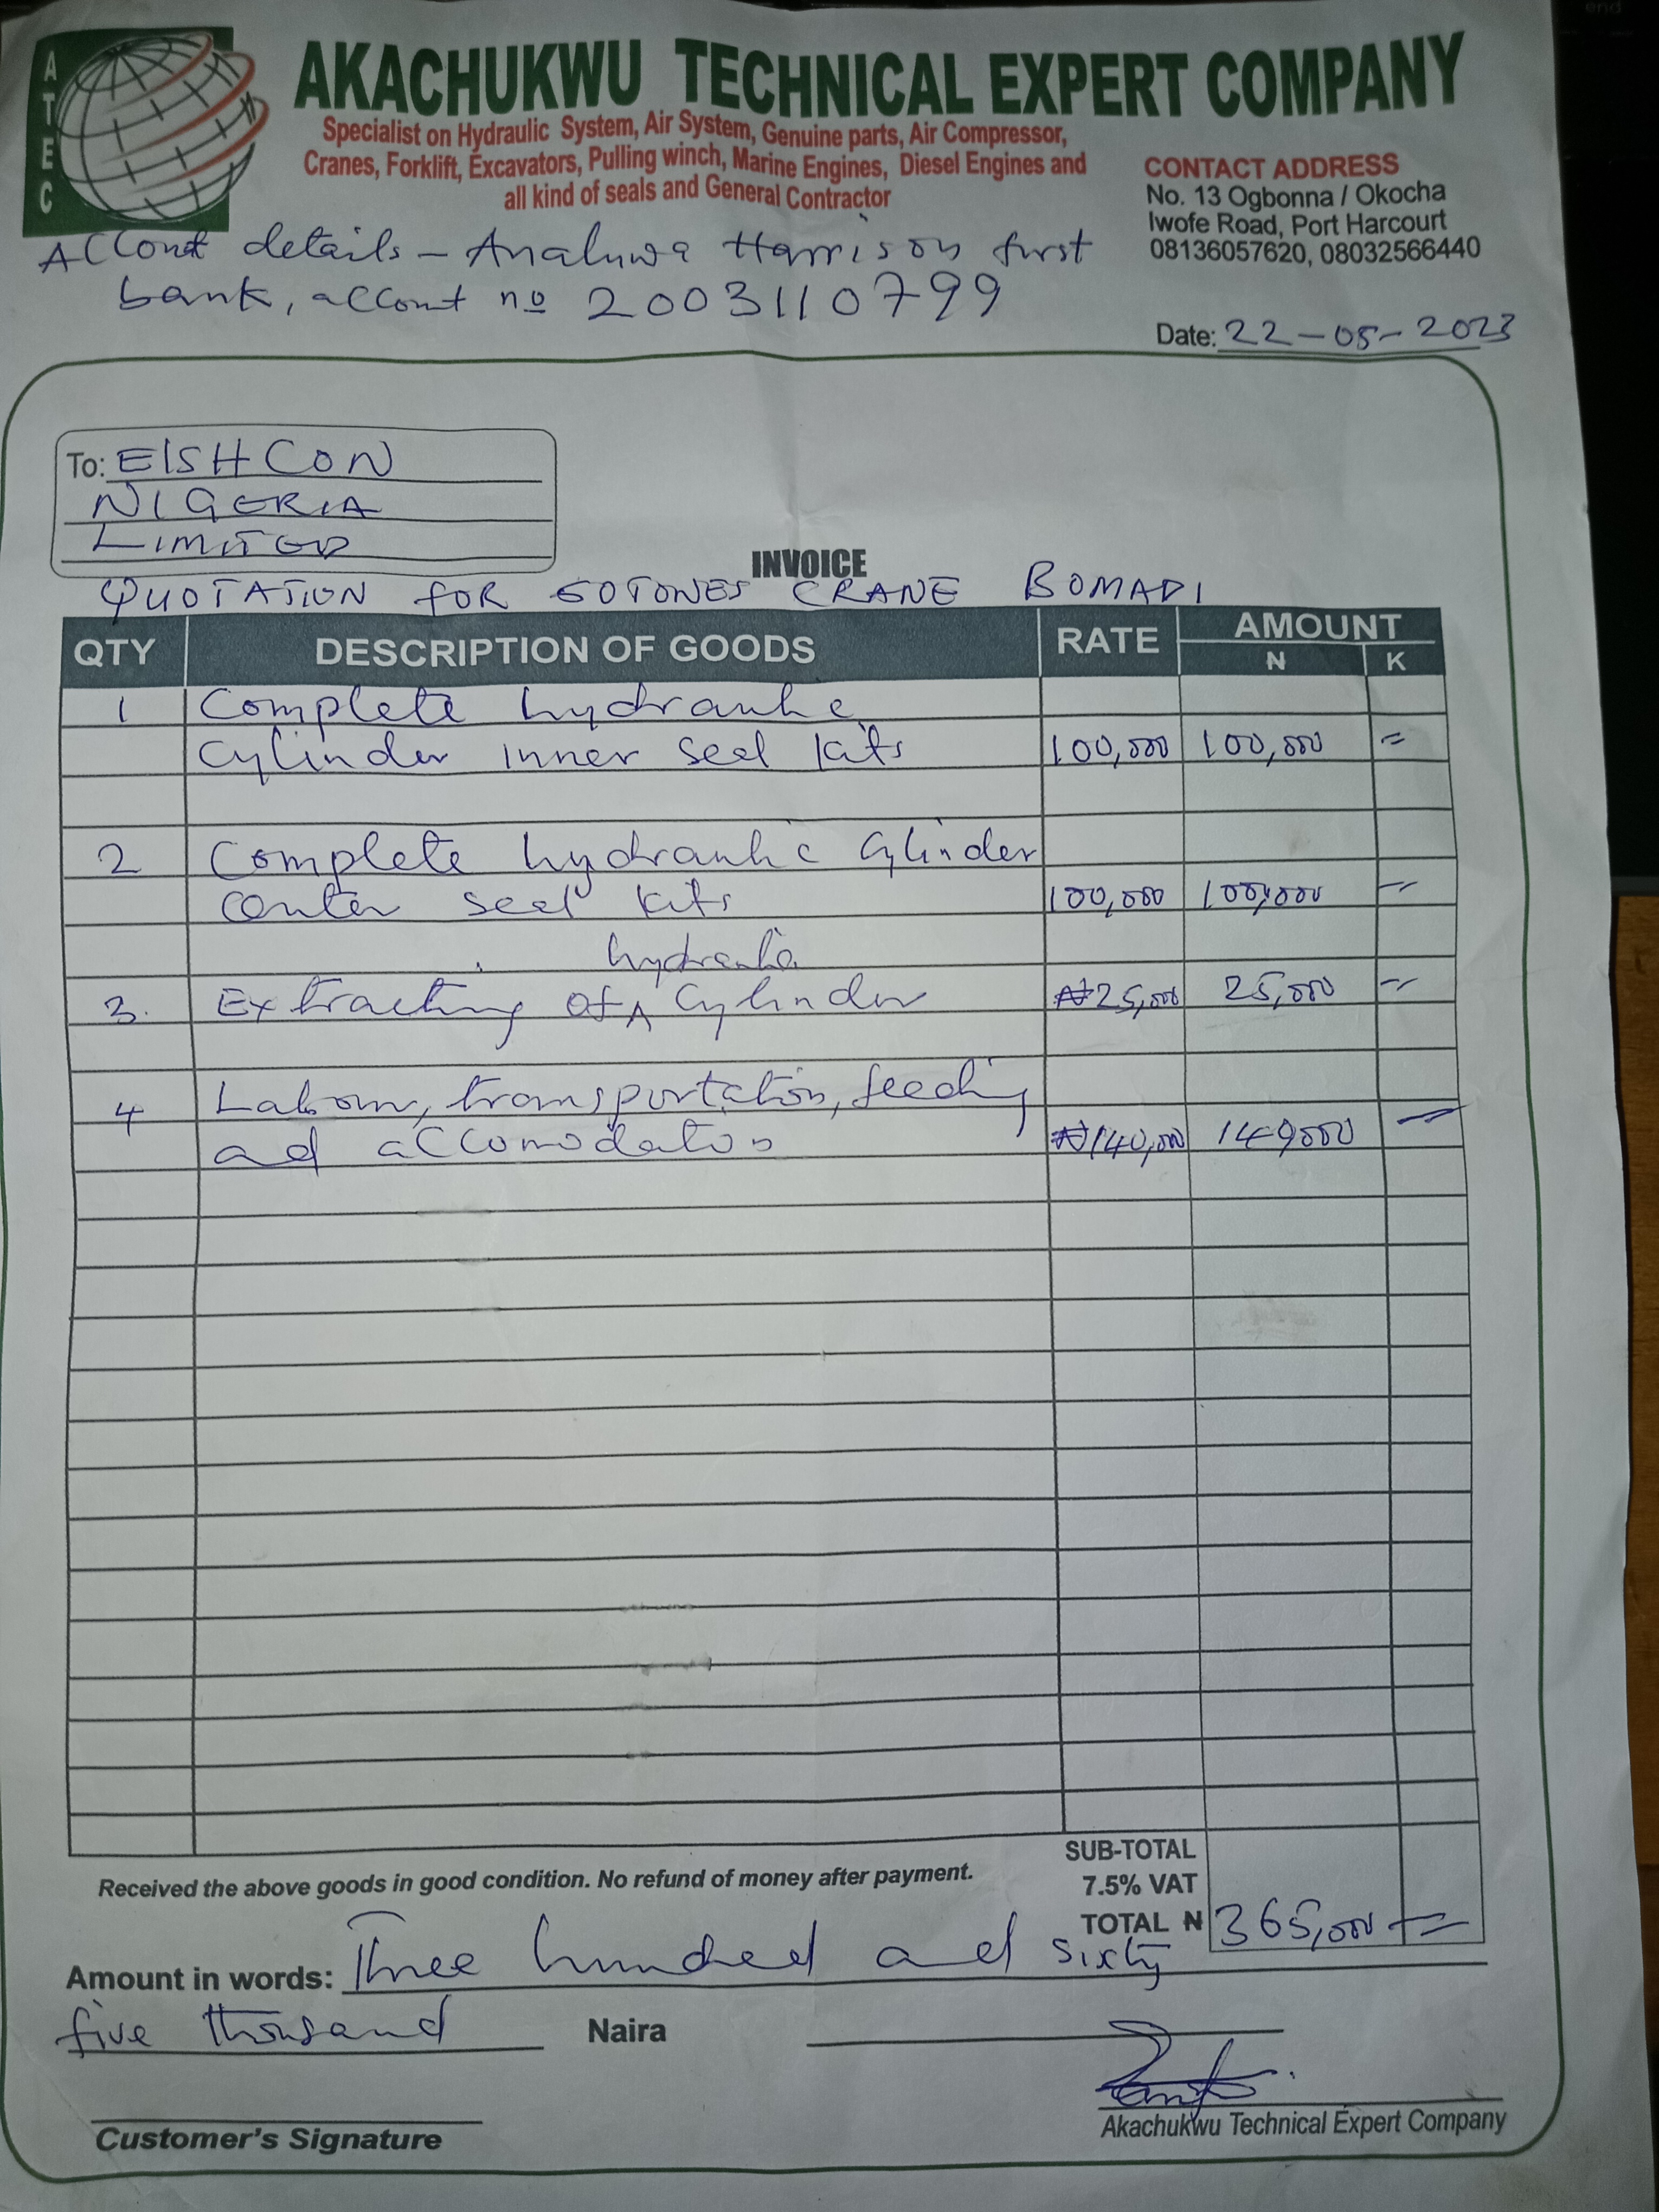 ATEC
AKACHUKWU TECHNICAL EXPERT COMPANY
Specialist on Hydraulic System, Air System, Genuine parts, Air Compressor,
Cranes, Forklift, Excavators, Pulling winch, Marine Engines, Diesel Engines and
all kind of seals and General Contractor
CONTACT ADDRESS
No. 13 Ogbonna / Okocha
Iwofe Road, Port Harcourt
08136057620, 08032566440
Account details - Harrison first
bank, account no 2003110799
Date: 22-05-2023
To: EISHCON
NIGERIA
LIMITED
INVOICE
QUOTATION FOR 50TONES CRANE BOMADI
QTY DESCRIPTION OF GOODS RATE AMOUNT
N K
1 Complete hydraulic
cylinder inner seal kits 100,000 100,000 =
2 Complete hydraulic cylinder
center seal kits 100,000 100,000 =
hydraulic
3. Extracting of ^ cylinder ₦25,000 25,000 =
4 Labour, transportation, feeding
ad accomodation ₦140,000 140,000 =
SUB-TOTAL
Received the above goods in good condition. No refund of money after payment.
7.5% VAT
TOTAL ₦ 365,000 =
Amount in words: Three hundred ad sixty
five thousand Naira
Customer's Signature
Akachukwu Technical Expert Company